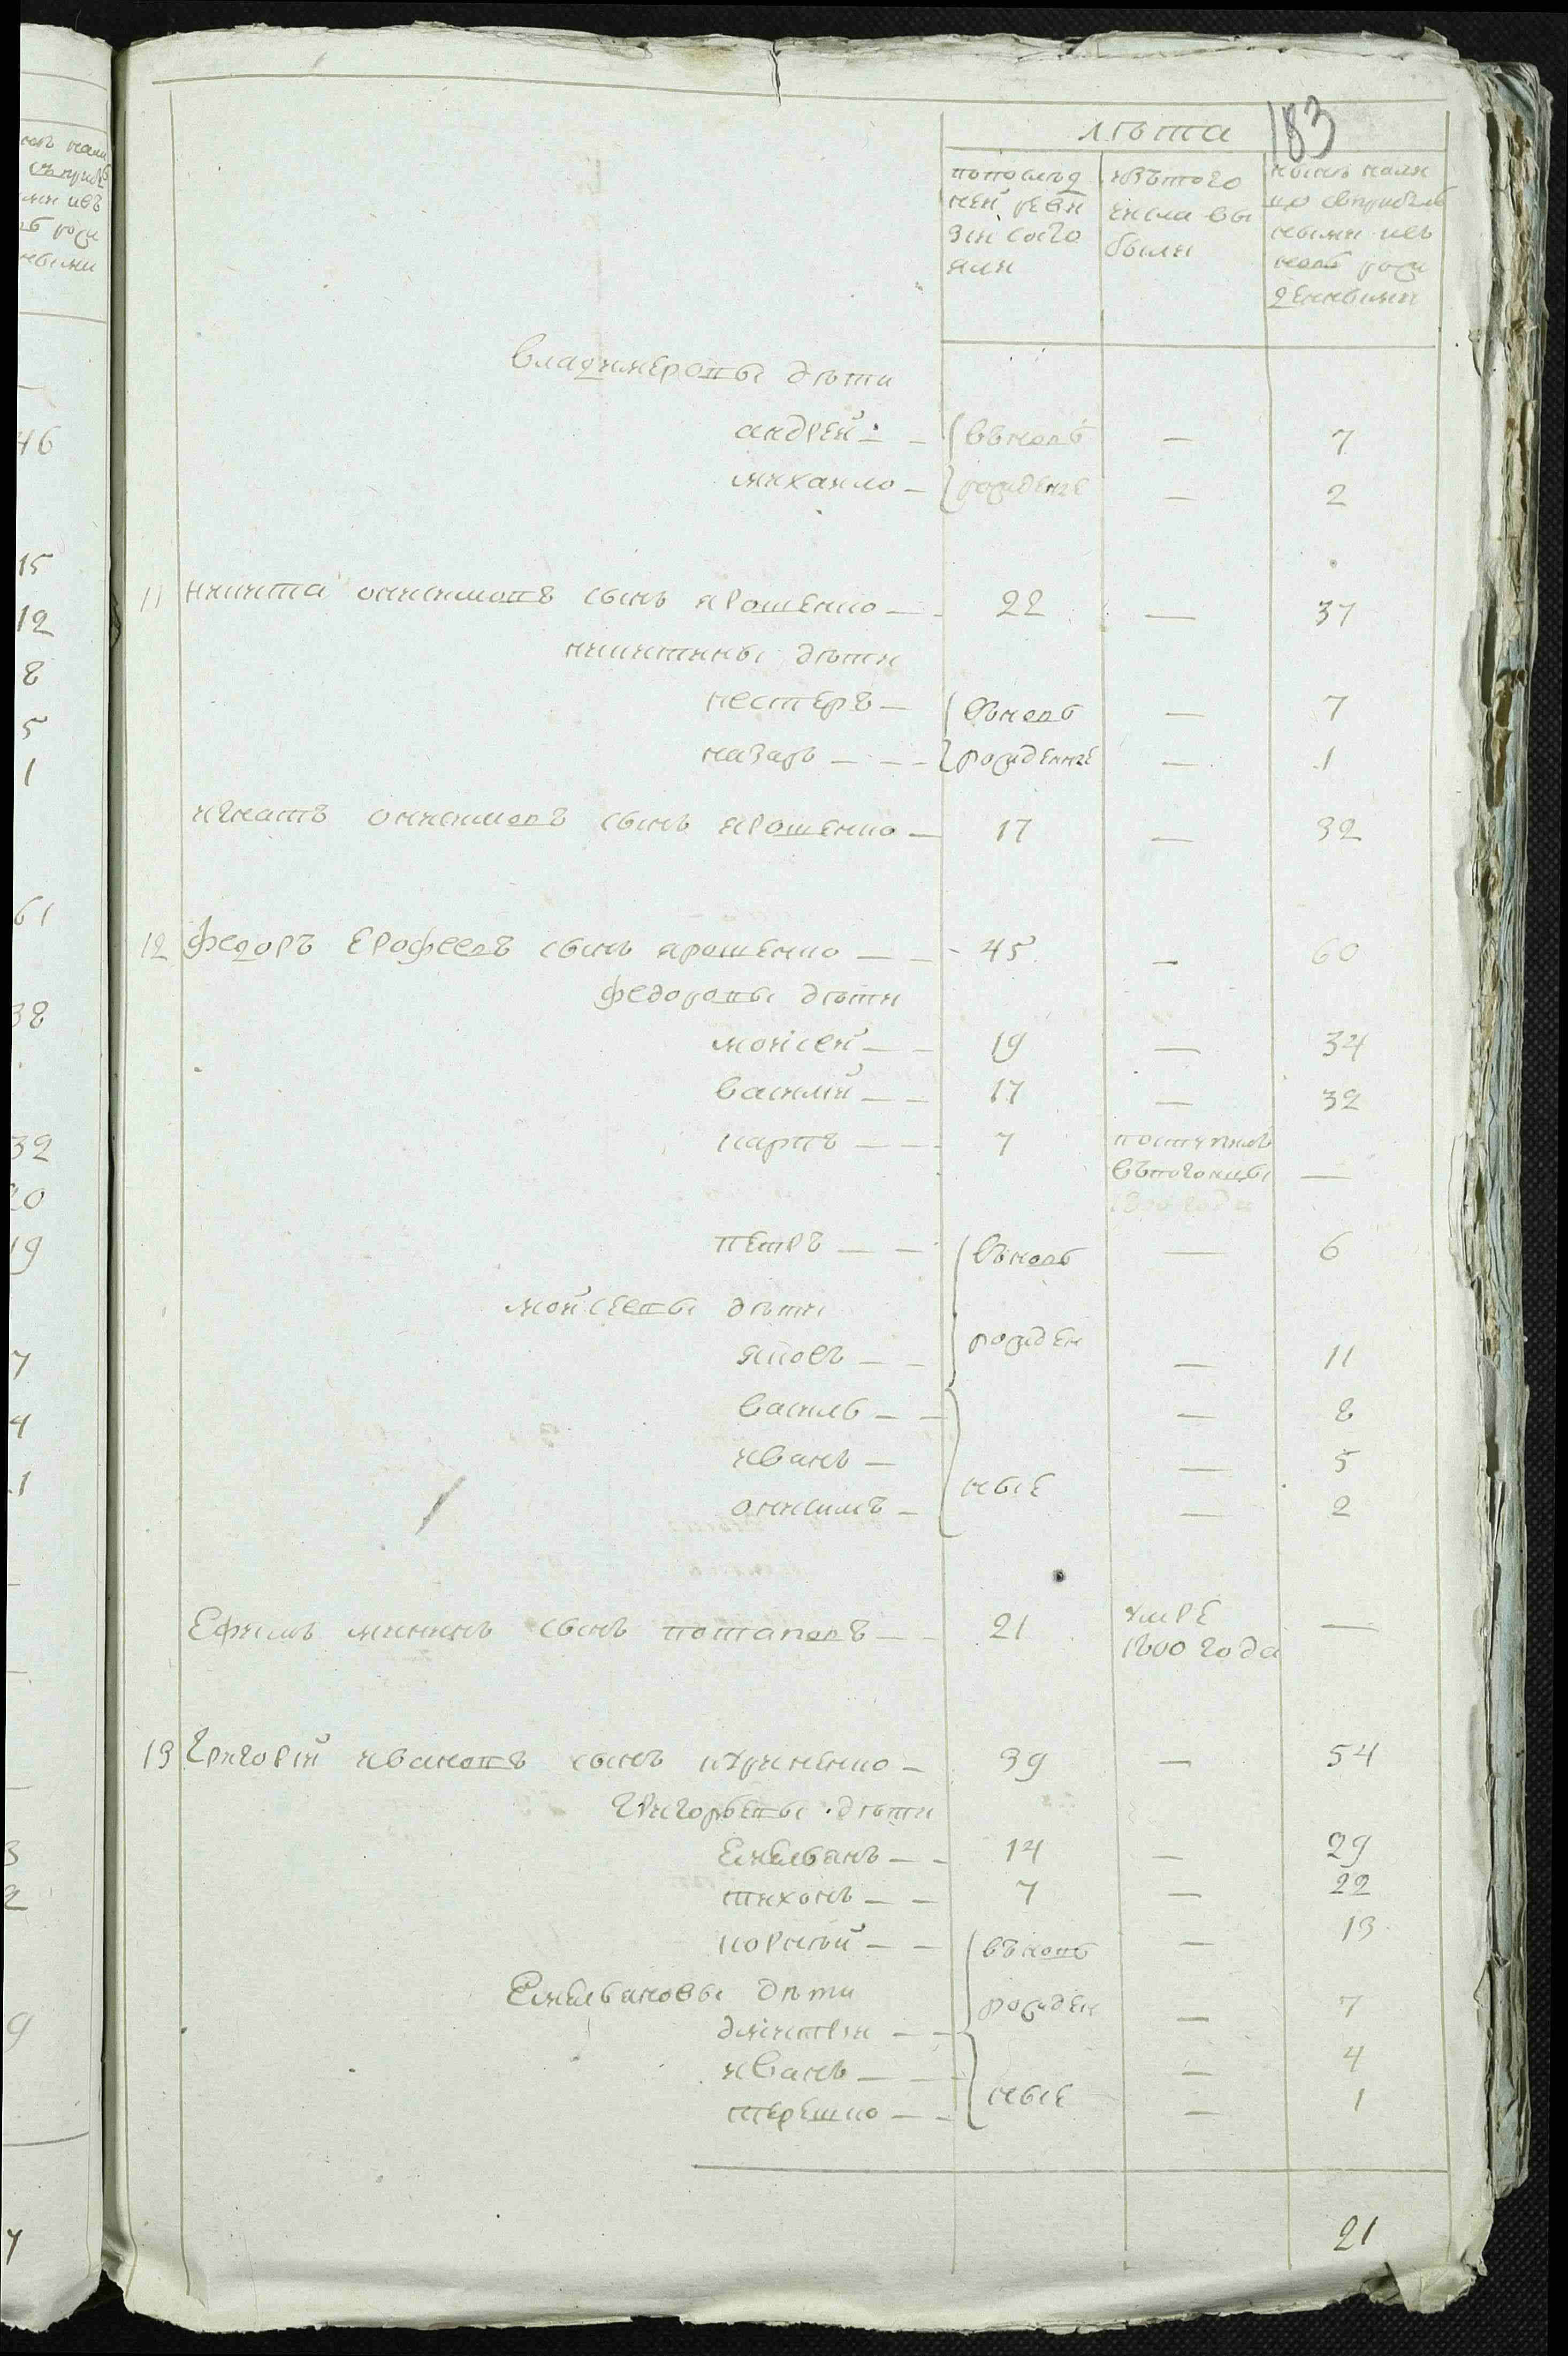 183
лѣта
попослед
ней реви
зіи состо
яли
изътого
числа вы
были
нынѣ нали
цо съприбыл
ными изъ
новь рож
денными
владимеровы дѣти
андрей — вънов 
рожденые — 7
михаило — — 2
11 никита онисимовъ сынъ ярошенко — 22 — 37
никитины дѣти
нестеръ — вновь — 7
назаръ — рожденные — 1
игнатъ онисимовъ сынъ ярошенко — 17 — 32
12 федоръ ерофеевъ сынъ ярошенко — 45 — 60
федоровы дѣти
моисей — 19 — 34
василий — 17 — 32
карпъ — 7 поступилъ —
въпогонцы
1800 года
петръ — вънов — 6
мойсеевы дѣти
рожден
яковъ — — 11
василь — — 8
иванъ — — 5
ные
онисимъ — — 2
Ефимъ мининъ сынъ потаповъ — 21 умре —
1800 года
13 Григорій ивановъ сынъ куриненко — 39 — 54
Григорьевы дѣти
Емельянъ — 14 — 29
тихонъ — 7 — 22
корнѣй — вънов — 13
Емельяновы дѣти
рожден
дмитрій — — 7
иванъ — — 4
ные
терешко — — 1
21